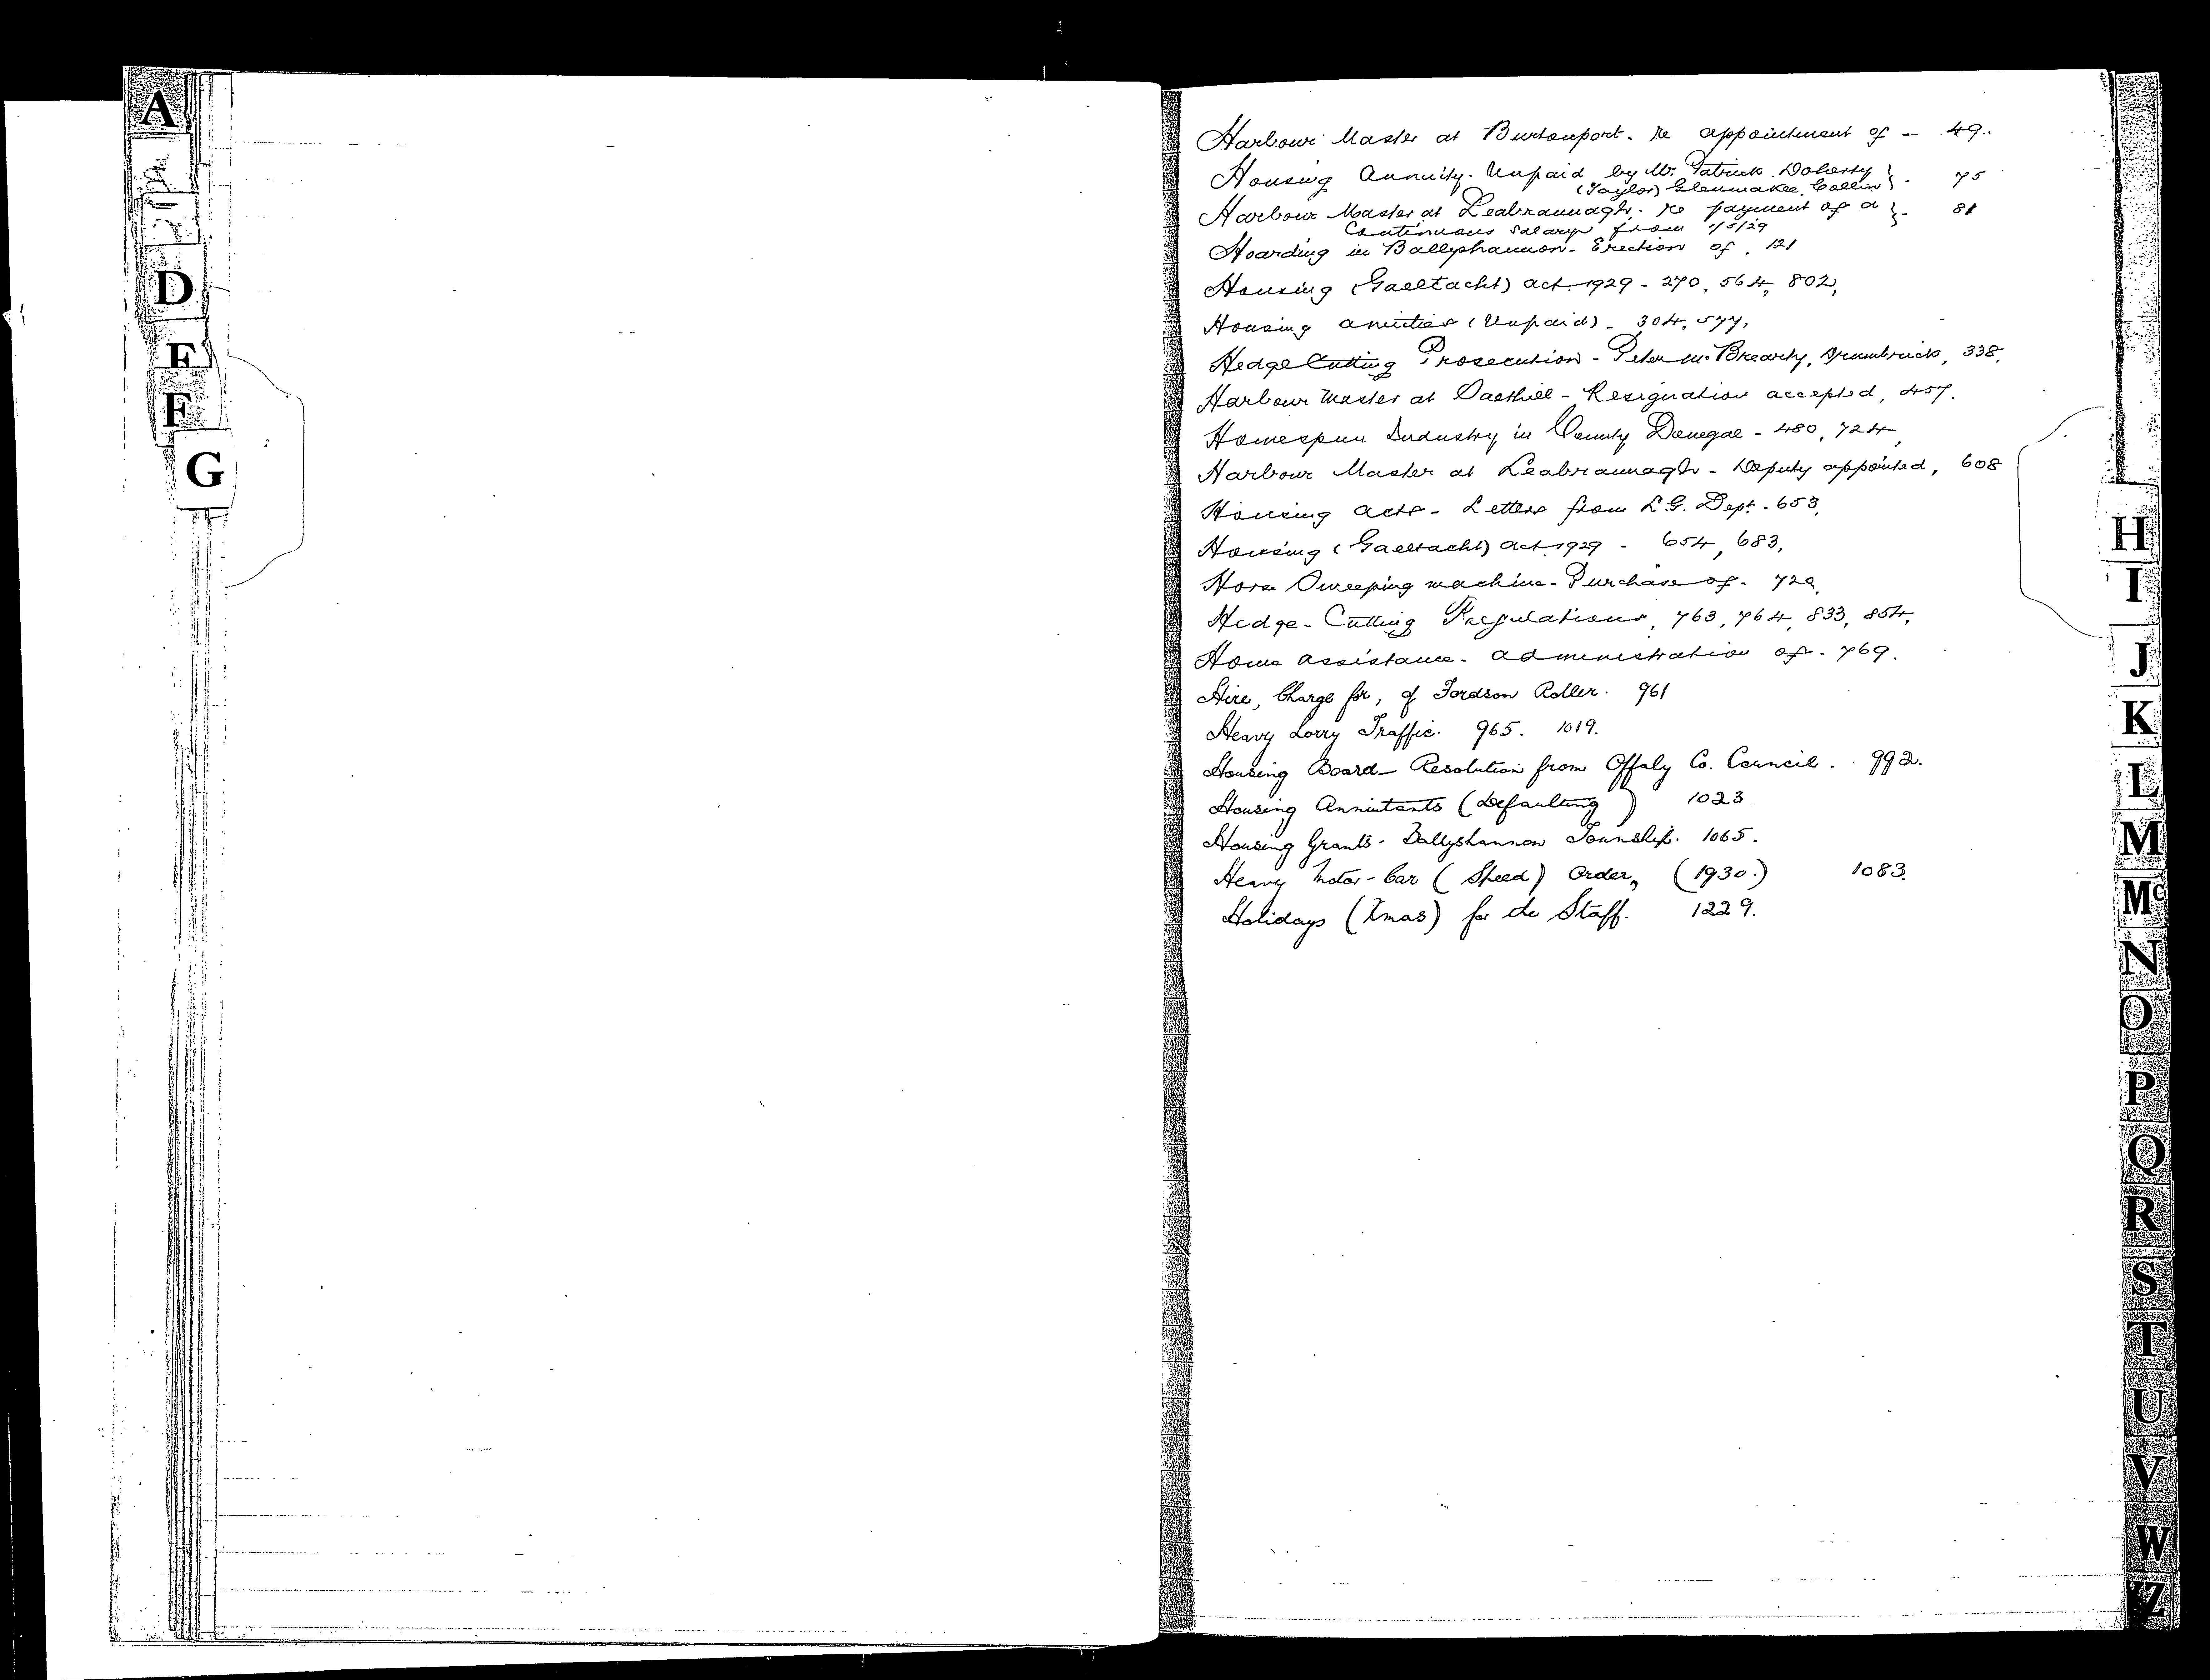 A
D
E
F
G
Harbour Master at Burtonport. Re appointment of - 49.
Housing Annuity. Unpaid by Mr. Patrick Doherty } - 75
(Taylor) Glenmakee, Collin
Harbour Master at Leabrannagh. Re payment of a } - 81
Continuous Salary from 1/5/29
Hoarding in Ballyshannon - Erection of, 121
Housing (Gaeltacht) Act. 1929 - 270, 564, 802,
Housing anuities (Unpaid) - 304, 577,
Hedge Cutting Prosecution - Peter McBrearty, Drumbrick, 338,
Harbour Master at - Resignation accepted, 457.
Homespun Industry in County Donegal - 480, 724,
Harbour Master at Leabrannagh - Deputy appointed, 608
Housing Acts - Letters from L.G. Dept. - 653,
Housing (Gaeltacht) Act 1929 - 654, 683,
Horse Sweeping machine - Purchase of - 720,
Hedge-Cutting Regulations, 763, 764, 833, 854,
Home Assistance - administration of - 769.
Hire, Charge for, of Fordson Roller. 961
Heavy Lorry Traffic. 965. 1019.
Housing Board - Resolution from Offaly Co. Council. 992.
Housing Annuitants (Defaulting) 1023.
Housing Grants - Ballyshannon Township. 1065.
Heavy Motor-Car (Speed) Order, (1930.) 1083.
Holidays (Xmas) for the Staff. 1229.
H
I
J
K
L
M
Mc
N
O
P
Q
R
S
T
U
V
W
YZ